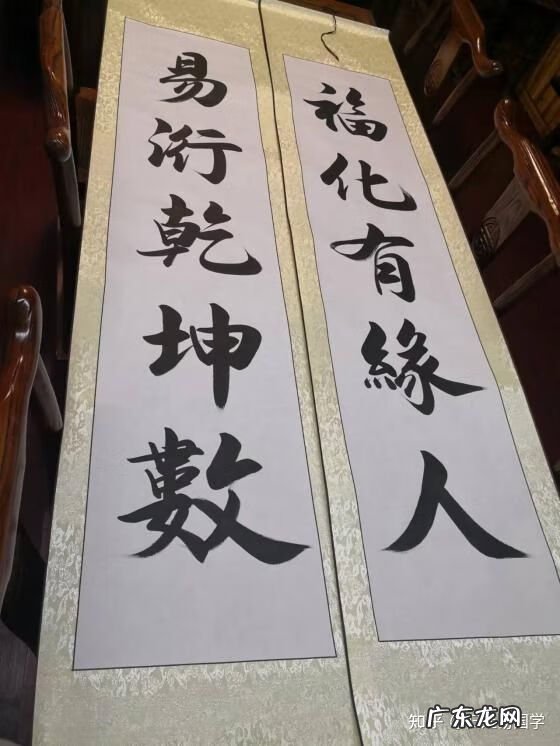 易衍乾坤數
福化有緣人
知乎
国学
广东龙网